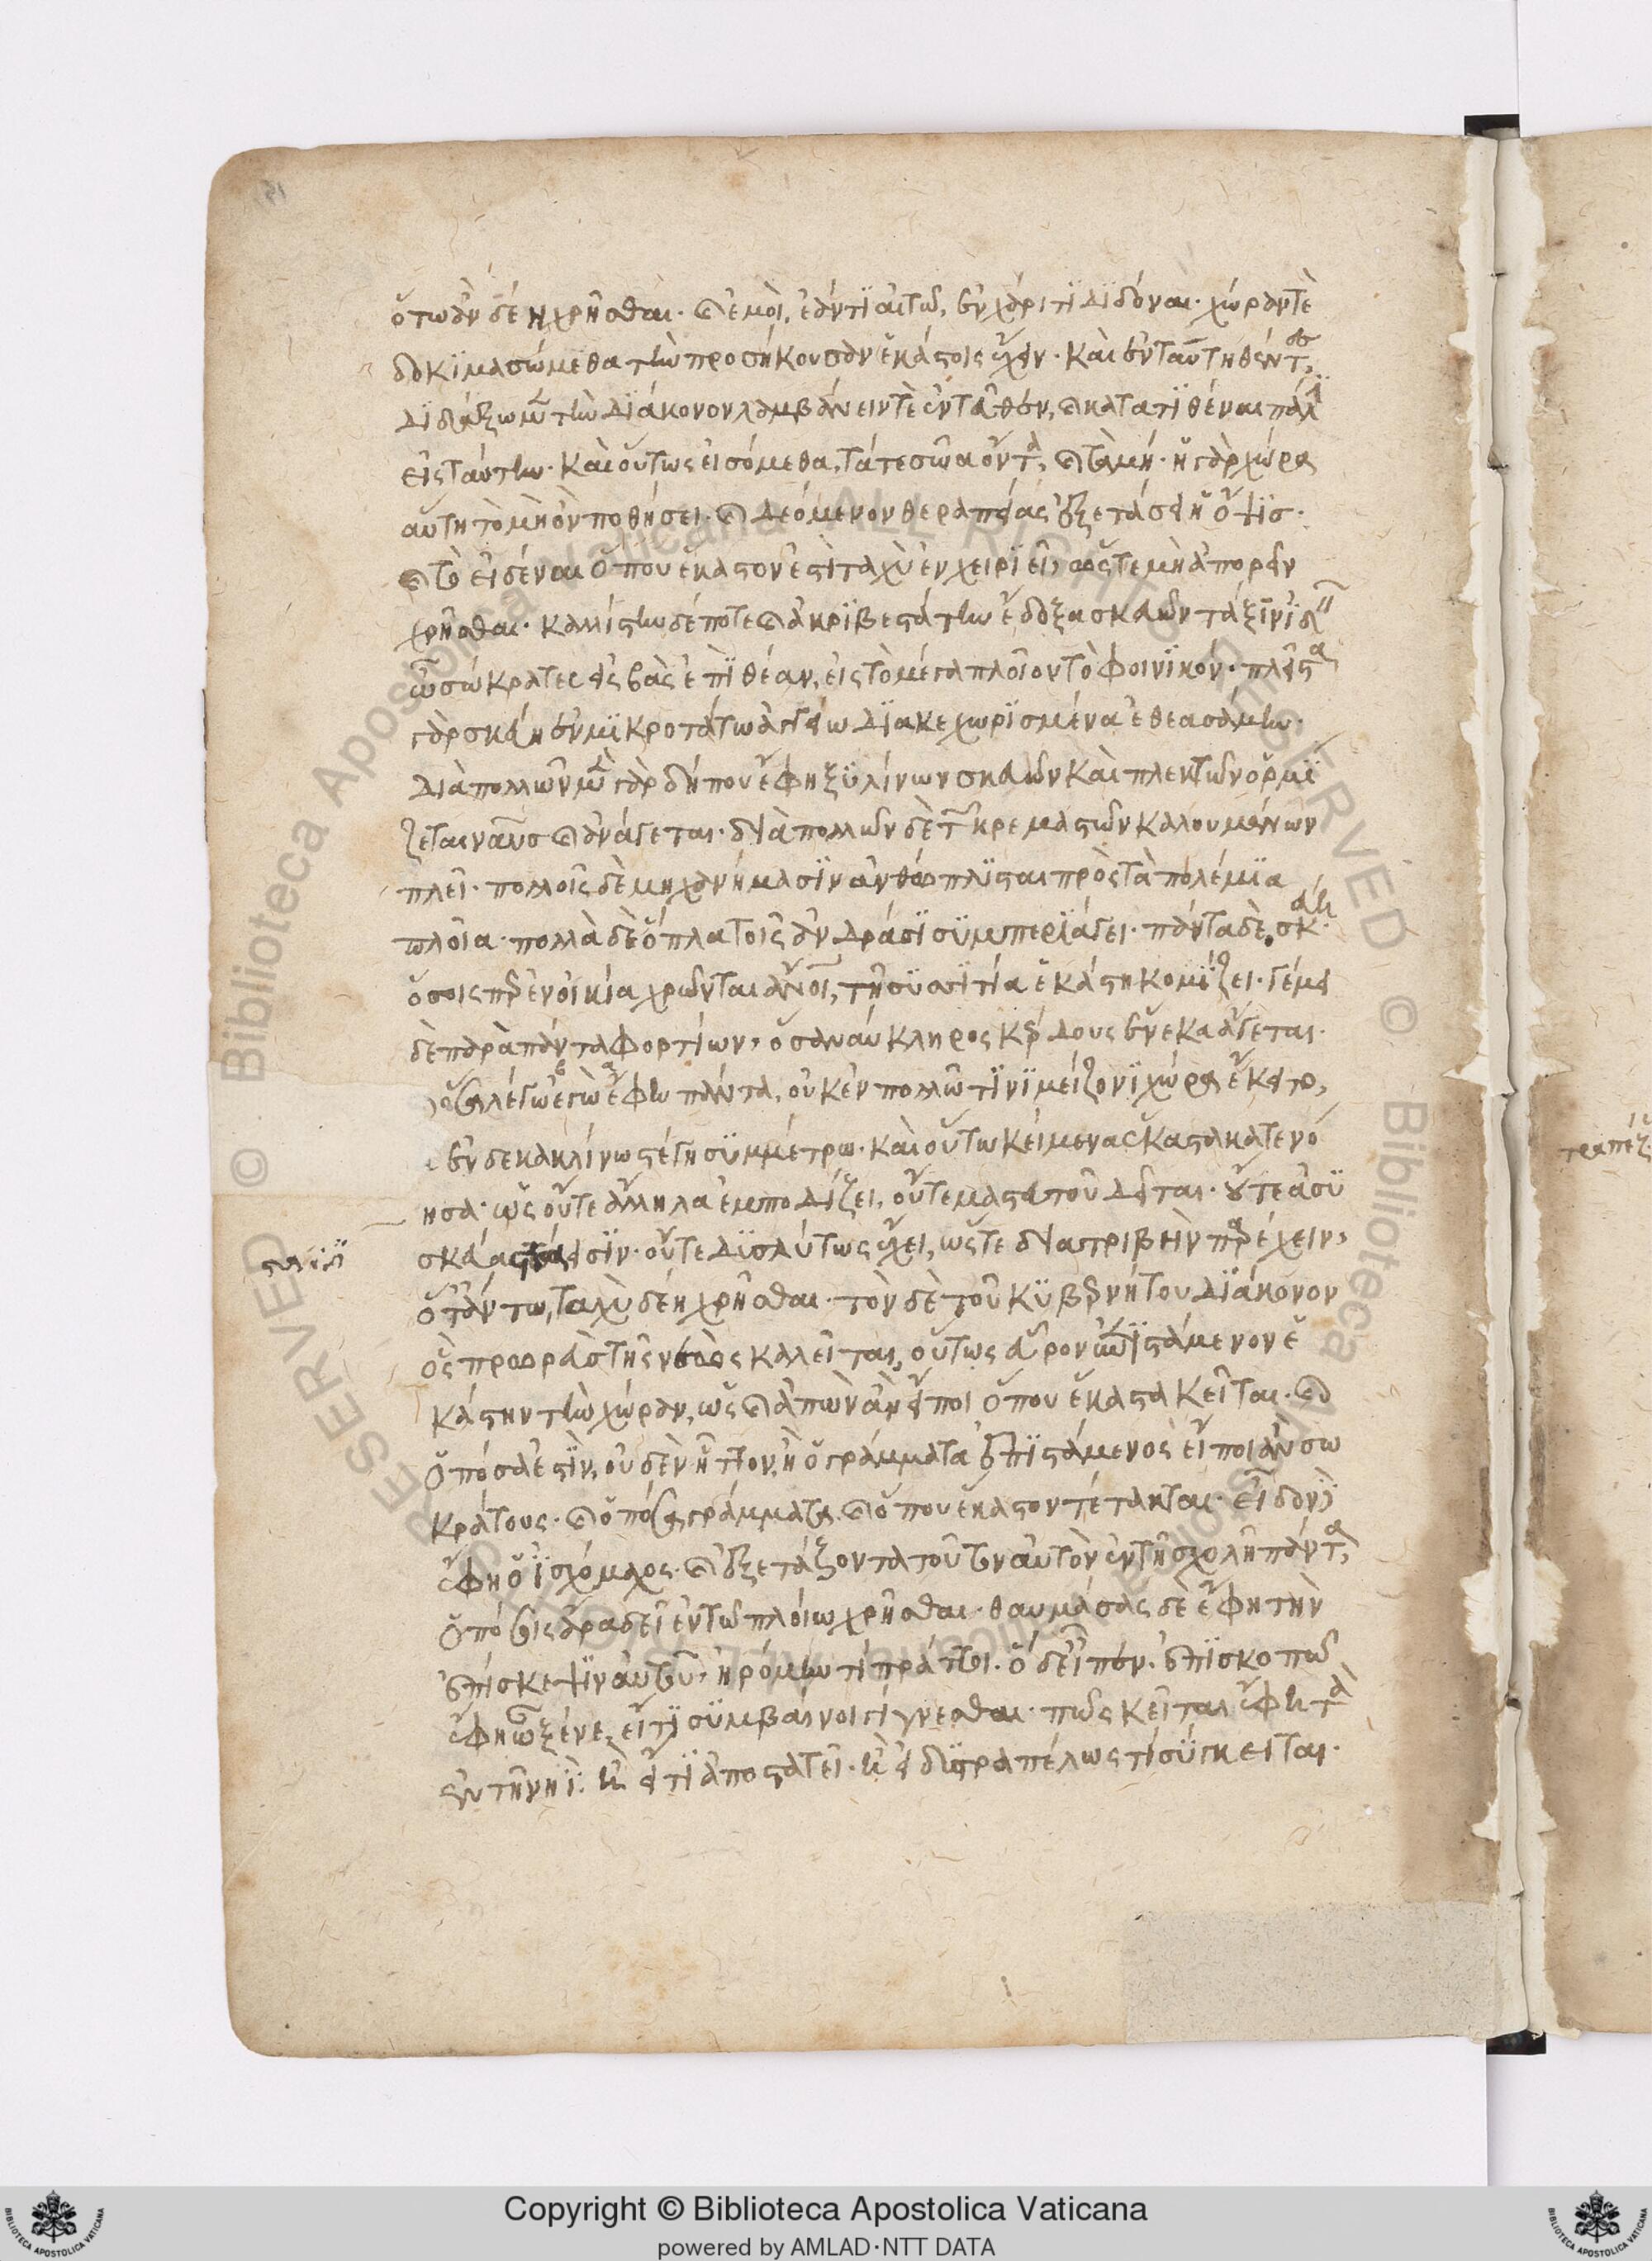 ὅτω ἂν δέη χρῆσθαι. καὶ ἐμοὶ, ἐάν τι αἰτῶ, ἐν χάριτι διδόναι. χώραν τὲ
δοκιμασώμεθα τὴν προσήκουσαν ἑκάστοις ἔχειν. καὶ ἐν ταύτη θέντες
διδάξωμεν τὴν διάκονον λαμβάνειν τὲ ἐντεῦθεν, καὶ κατατιθέναι πάλιν
εἰς ταύτην. καὶ οὕτως εἰσόμεθα, τά τε σῶα ὄντα, καὶ τὰ μή. ἡ γὰρ χώρα
αὕτη τὸ μὴ ὂν ποθήσει. καὶ δεόμενον θεραπείας ἐξετάσει ἡ ὄψις.
καὶ τὸ εἰδέναι ὅπου ἕκαστον ἐστὶ ταχὺ ἐγχειριεῖ, ὥστε μὴ ἀπορεῖν
χρῆσθαι. καλλίστην δέ ποτε καὶ ἀκριβεστάτην ἔδοξα σκευῶν τάξιν ἰδεῖν
ὦ σώκρατες εἰσβὰς ἐπὶ θέαν, εἰς τὸ μέγα πλοῖον τὸ φοινικόν. πλεῖστα
γὰρ σκεύη ἐν μικροτάτω ἀγγείω διακεχωρισμένα ἐθεασάμην.
διὰ πολλῶν μὲν γὰρ δήπου ἔφη ξυλίνων σκευῶν καὶ πλεκτῶν ὁρμί
ζεται ναῦς καὶ ἀνάγεται. διὰ πολλῶν δὲ τῶν κρεμαστῶν καλουμένων
πλεῖ. πολλοῖς δὲ μηχανήμασιν ἀνθώπλισται πρὸς τὰ πολέμια
πλοῖα. πολλὰ δὲ ὅπλα τοῖς ἀνδράσι συμπεριάγει. πάντα δὲ σκεύη
ὅσοις περ ἐν οἰκία χρῶνται ἄνθρωποι, τῆ συσσιτία ἑκάστη κομίζει. γέμει
δὲ παρὰ πάντα φορτίων, ὅσα ναύκληρος κέρδους ἕνεκα ἄγεται.
καὶ ὅσα λέγω ἐγὼ ἔφη πάντα, οὐκ ἐν πολλῶ τινὶ μείζονι χώρα ἔκειτο,
ἢ ἐν δεκακλίνω στέγη συμμέτρω. καὶ οὕτω κείμενα ἕκαστα κατενό
ησα. ὡς οὔτε ἄλληλα ἐμποδίζει, οὔτε μαστευτοῦ δεῖται. οὔτε ἀσυ
σκεύαστά εἰσιν. οὔτε δυσλύτως ἔχει, ὥστε διατριβὴν παρέχειν,
ὅταν τω ταχὺ δέη χρῆσθαι. τὸν δὲ τοῦ κυβερνήτου διάκονον
ὃς πρωρεὺς τῆς νεὼς καλεῖται, οὕτως εὗρον ἐπιστάμενον ἑ
κάστην τὴν χώραν, ὡς καὶ ἀπὼν ἂν εἴποι ὅπου ἕκαστα κεῖται. καὶ
ὁπόσα ἐστὶν, οὐδὲν ἧττον, ἢ ὁ γράμματα ἐπιστάμενος εἴποι ἂν σω
κράτους. καὶ ὁπόσα γράμματα, καὶ ὅπου ἕκαστον τέτακται. εἶδον δὲ
ἔφη ὁ ἰσχόμαχος. καὶ ἐξετάζοντα τοῦτον αὐτὸν ἐν τῆ σχολῆ πάντα,
ὁπόσοις ἄρα δεῖ ἐν τῶ πλοίω χρῆσθαι. θαυμάσας δὲ ἔφη τὴν
ἐπίσκεψιν αὐτοῦ, ἠρόμην τί πράττει. ὁ δ' εἶπεν. ἐπισκοπῶ
ἔφη ὦ ξένε, εἴ τι συμβαίνοι γίγνεσθαι. πῶς κεῖται ἔφη τὰ
ἐν τῆ νηΐ. ἢ εἴ τι ἀποστατεῖ. ἢ εἰ δυστραπέλως τί σύγκειται.